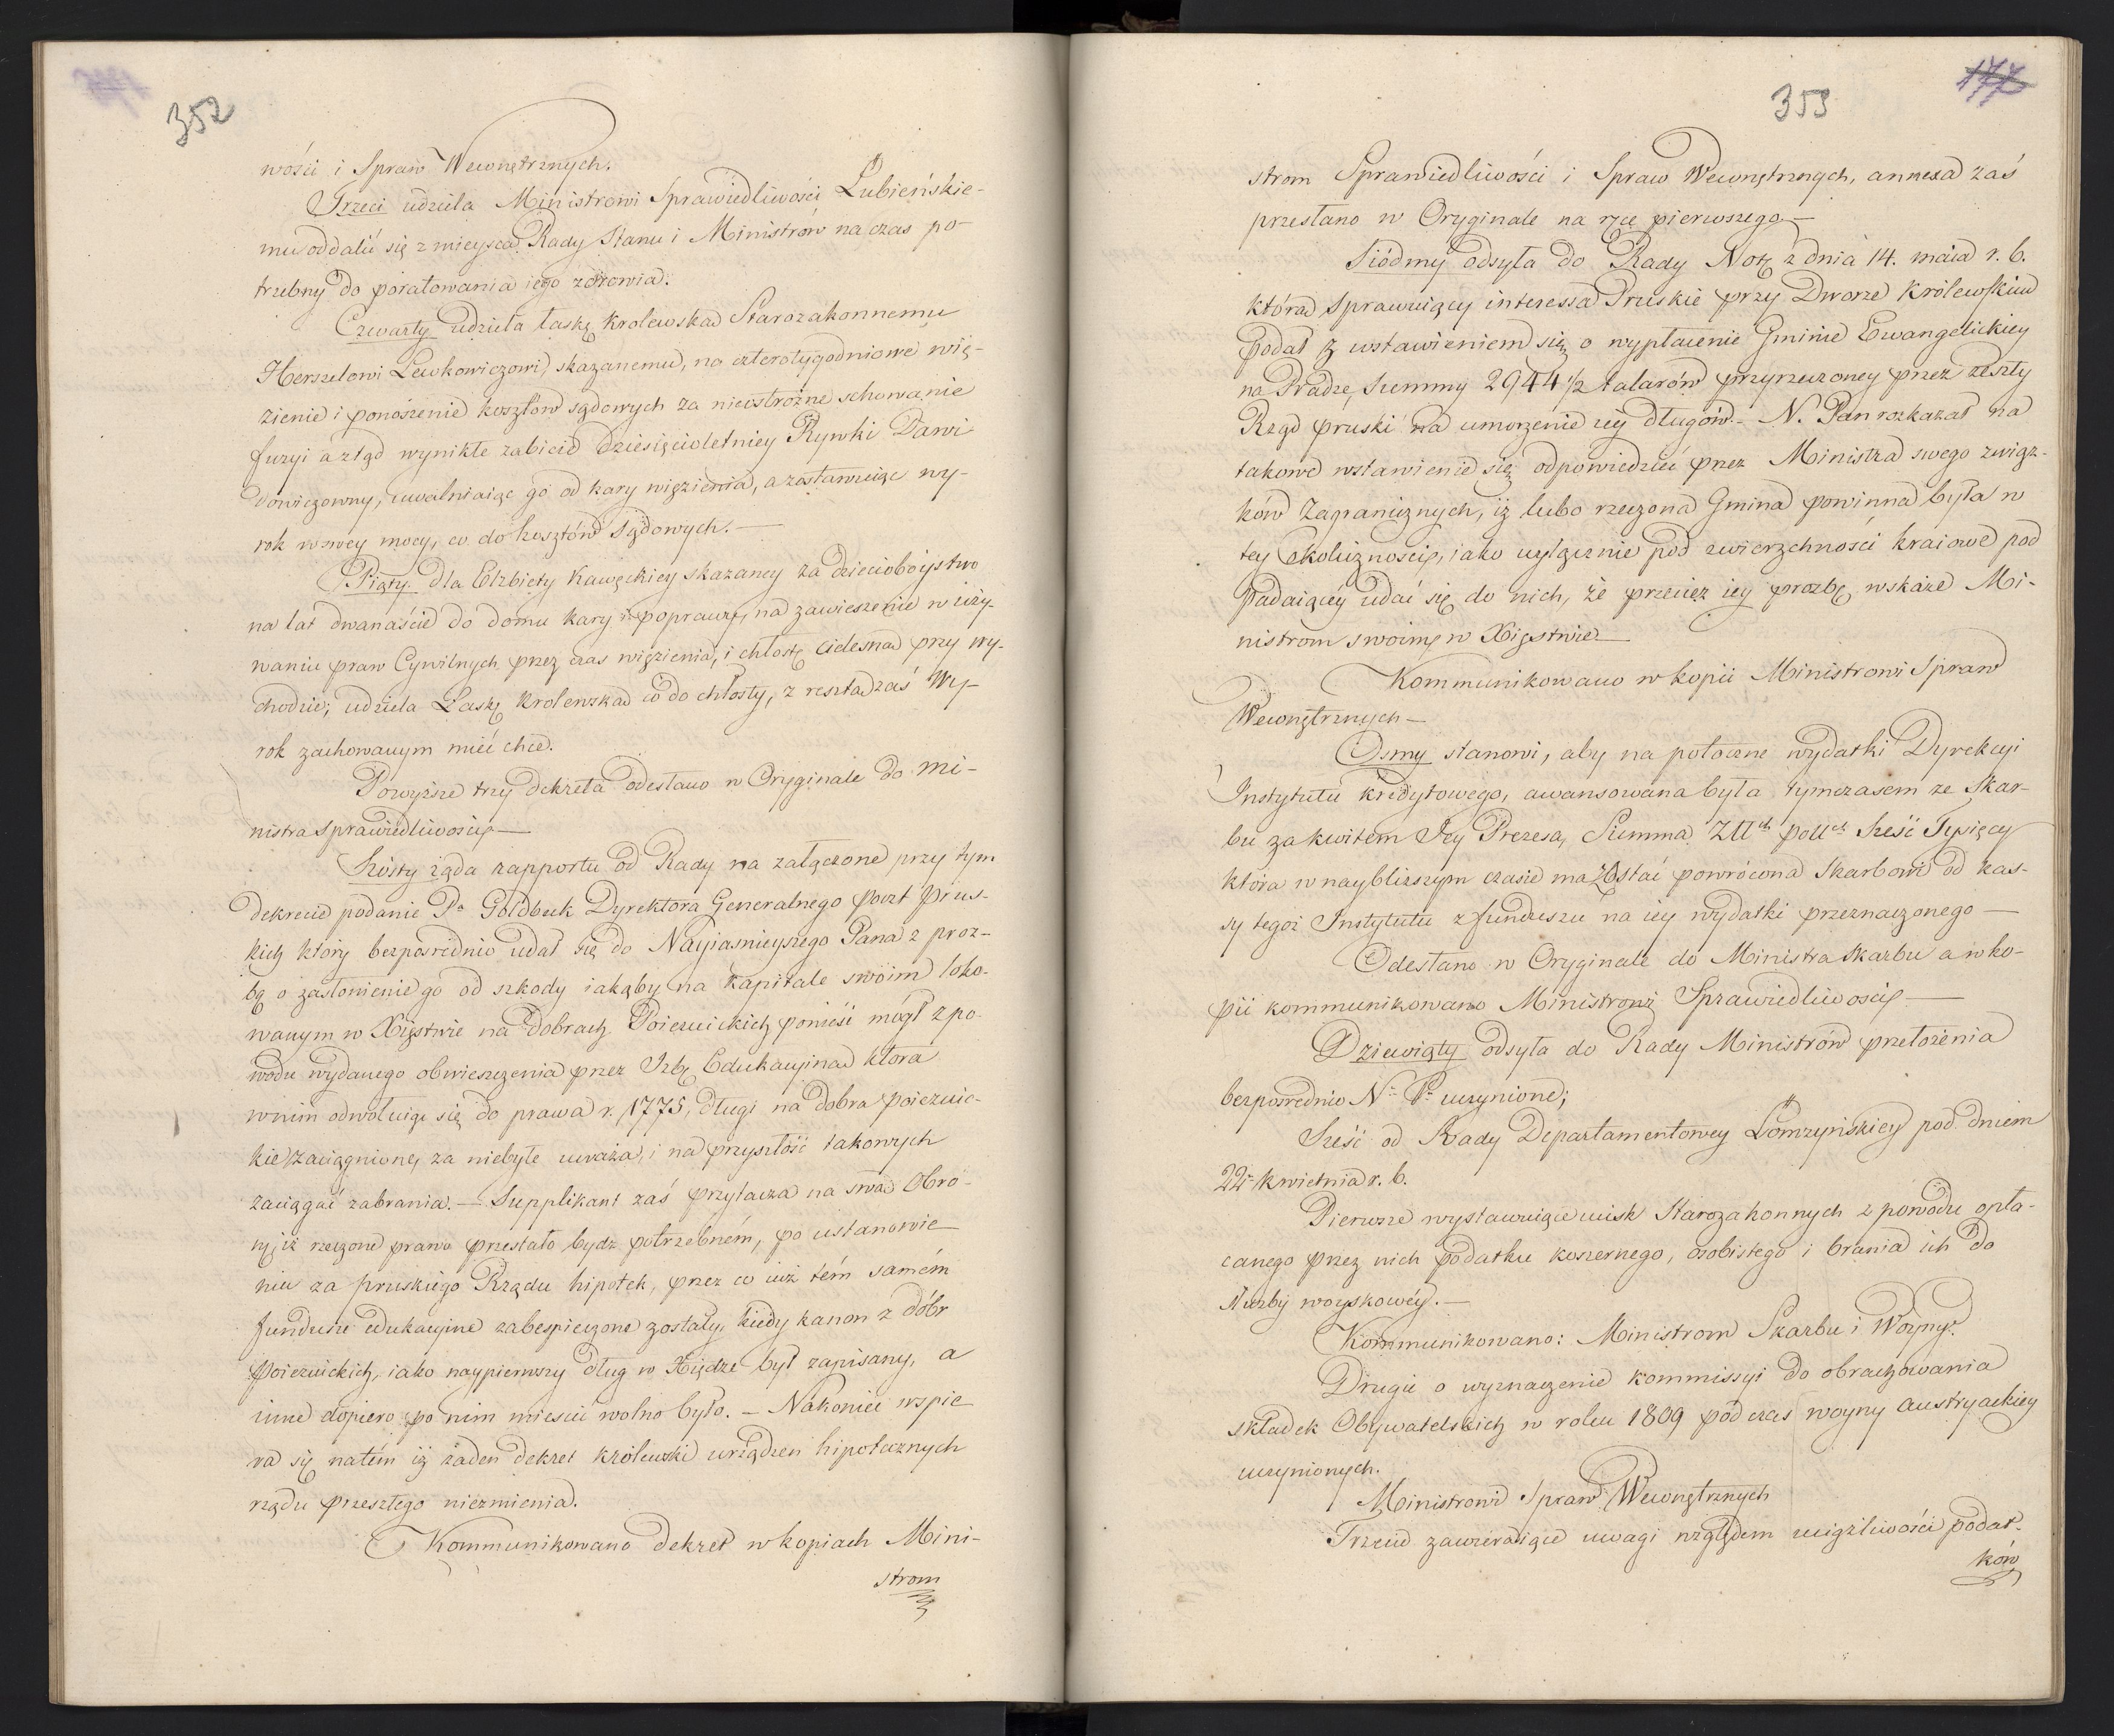 352
wości i Spraw Wewnętrznych.
Trzeci udziela Ministrowi Sprawiedliwości Łubieńskie-
mu oddalić się z mieysca Rady Stanu i Ministrów na czas po-
trzebny do poratowania iego zdrowia.
Czwarty udziela łaskę krolewska Starozakonnemu
Herszelowi Lewkowiczowi, skazanemu, na czterotygodniowe wię-
zienie i ponoszenie kosztów sądowych za nieostrożne schowanie
fuzyi a ztąd wynikłe zabicie dziesięcioletniey Rywki Dawi
dowiczowny, uwalniaiąc go od kary więzienia, a zostawuiąc wy-
rok w swey mocy, co do kosztów sądowych. —
Piąty dla Elżbiety Kawęckiey skazaney za dzieciobóystwo
na lat dwanaście do domu kary i poprawy, na zawieszenie w uży-
waniu praw Cywilnych przez czas więzienia, i chłostę cielesna przy wy-
chodzie; udziela Łaskę Krolewska co do chłosty, z resztą zaś Wy-
rok zachowanym mieć chce.
Powyższe trzy dekreta odesłano w Oryginale do Mi-
nistra Sprawiedliwości —
Szósty żąda rapportu od Rady na załączone przy tym
dekrecie podanie Pa Goldbeck Dyrektora Generalnego Poczt prus-
kich który bezpośrednio udał się do Nayiasnieyszego Pana z proz-
bą o zasłonienie go od szkody iakąby na kapitale swoim loko-
wanym w Xięstwie na dobrach Poiezuickich ponieść mógł z po-
wodu wydanego obwieszczenia przez Izbę Edukacyina która
w nim odwołuiąc się do prawa r. 1775, długi na dobra poiezuic-
kie zaciągnione, za niebyłe uważa, i na przyszłość takowych
zaciągać zabrania. — Supplikant zaś przytacza na swa Obro-
nę, iż rzeczone prawo przestało bydz potrzebném, po ustanowie
niu za pruskiego Rządu hipotek, przez co iuż tém samém
fundusze edukacyine zabespieczone zostały, kiedy kanon z dóbr
poiezuickich, iako naypierwszy dług w Xiędze był zapisany, a
inne dopiero po nim mieścić wolno było. — Nakoniec wspie
ra się natém iż żaden dekret królewski urządzeń hipotecznych
rządu przeszłego niezmienia.
Kommunikowano dekret w kopiach Mini-
strom
177
353
strom Sprawiedliwości i Spraw Wewnętrznych, annexa zaś
przesłano w Oryginale na ręcę pierwszego —
Siódmy odsyła do Rady Notę z dnia 14. maia r. b.
która sprawuiący interessa Pruskie przy Dworze Królewskim
podał z wstawieniem się, o wypłacenie Gminie Ewangelickiey
na Pradze, Summy 2944 1/2 talarów przyrzeczoney przez zeszły
Rząd pruski na umorzenie iey długów. — N. Pan rozkazał na
takowe wstawienie się odpowiedzieć przez Ministra swego związ-
ków Zagranicznych, iż lubo rzeczona Gmina powinna była w
tey okoliczności, iako wyłącznie pod zwierzchności kraiowe pod
padaiącey udać się do nich, że przecież iey prozbę, wskaże Mi-
nistrom swoim w Xięstwie —
Kommunikowano w kopii Ministrowi Spraw
Wewnętrznych —
Osmy stanowi, aby na potoczne wydatki Dyrekcyi
Instytutu kredytowego, awansowana była tymczasem ze Skar-
bu za kwitem Jey Prezesa, Summa Złłch pollch Sześć Tysięcy
która w nayblizszym czasie ma zostać powrócona Skarbowi od kas-
sy tegoż Instytutu z funduszu na iey wydatki przeznaczonego —
Odesłano w Oryginale do Ministra Skarbu a w ko-
pii kommunikowano Ministrowi Sprawiedliwości —
Dziewiąty odsyła do Rady Ministrów przełożenia
bezpośrednio N. P. uczynione;
Sześć od Rady Departamentowey Łomzyńskiey pod dniem
22. kwietnia r. b.
Pierwsze wystawuiące ucisk Starozakonnych z powodu opła-
canego przez nich podatku koszernego, osobistego i brania ich do
służby woyskowéy. —
Kommunikowano: Ministrom Skarbu i Woyny.
Drugie o wyznaczenie kommissyi do obrachowania
składek Obywatelskich w roku 1809 podczas woyny austryackiey
uczynionych.
Ministrowi Spraw Wewnętrznych
Trzecie zawieraiące uwagi względem uciążliwości podat-
ków